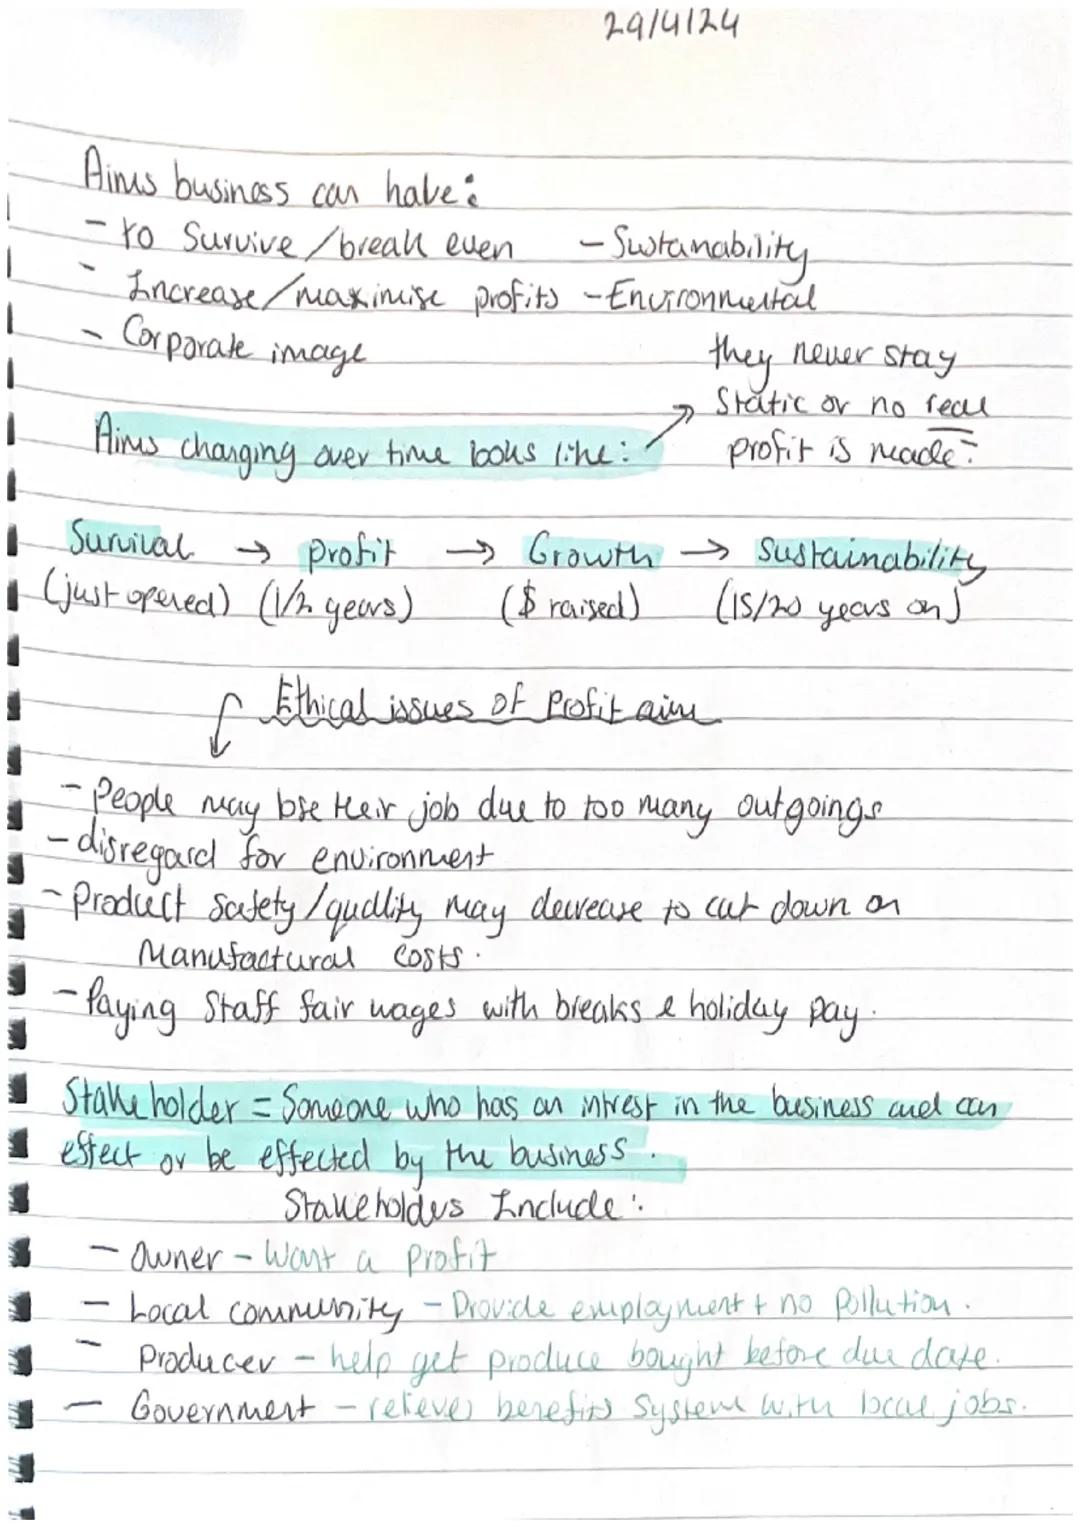 29/4/24
Aims business can have:
- to Survive/break even - Sustanability
- Increase/maximise profits - Environmental
- Corporate image
they never stay
Static or no real
profit is made:
Aims changing over time looks like:
Survival → profit → Growth → Sustainability
(just opened) (1/2 years) ($ raised) (15/20 years on)
Ethical issues of Profit aim
- People may lose their job due to too many outgoings
- disregard for environment
- Product safety/quality may decrease to cut down on
Manufactural costs.
- Paying Staff fair wages with breaks & holiday pay.
Stakeholder = Someone who has an intrest in the business and can
effect or be effected by the business.
Stakeholders Include:
- Owner - Want a profit
- Local community - Provide employment + no Pollution.
- Producer - help get produce bought before due date.
- Government - relieves benefits System with local jobs.